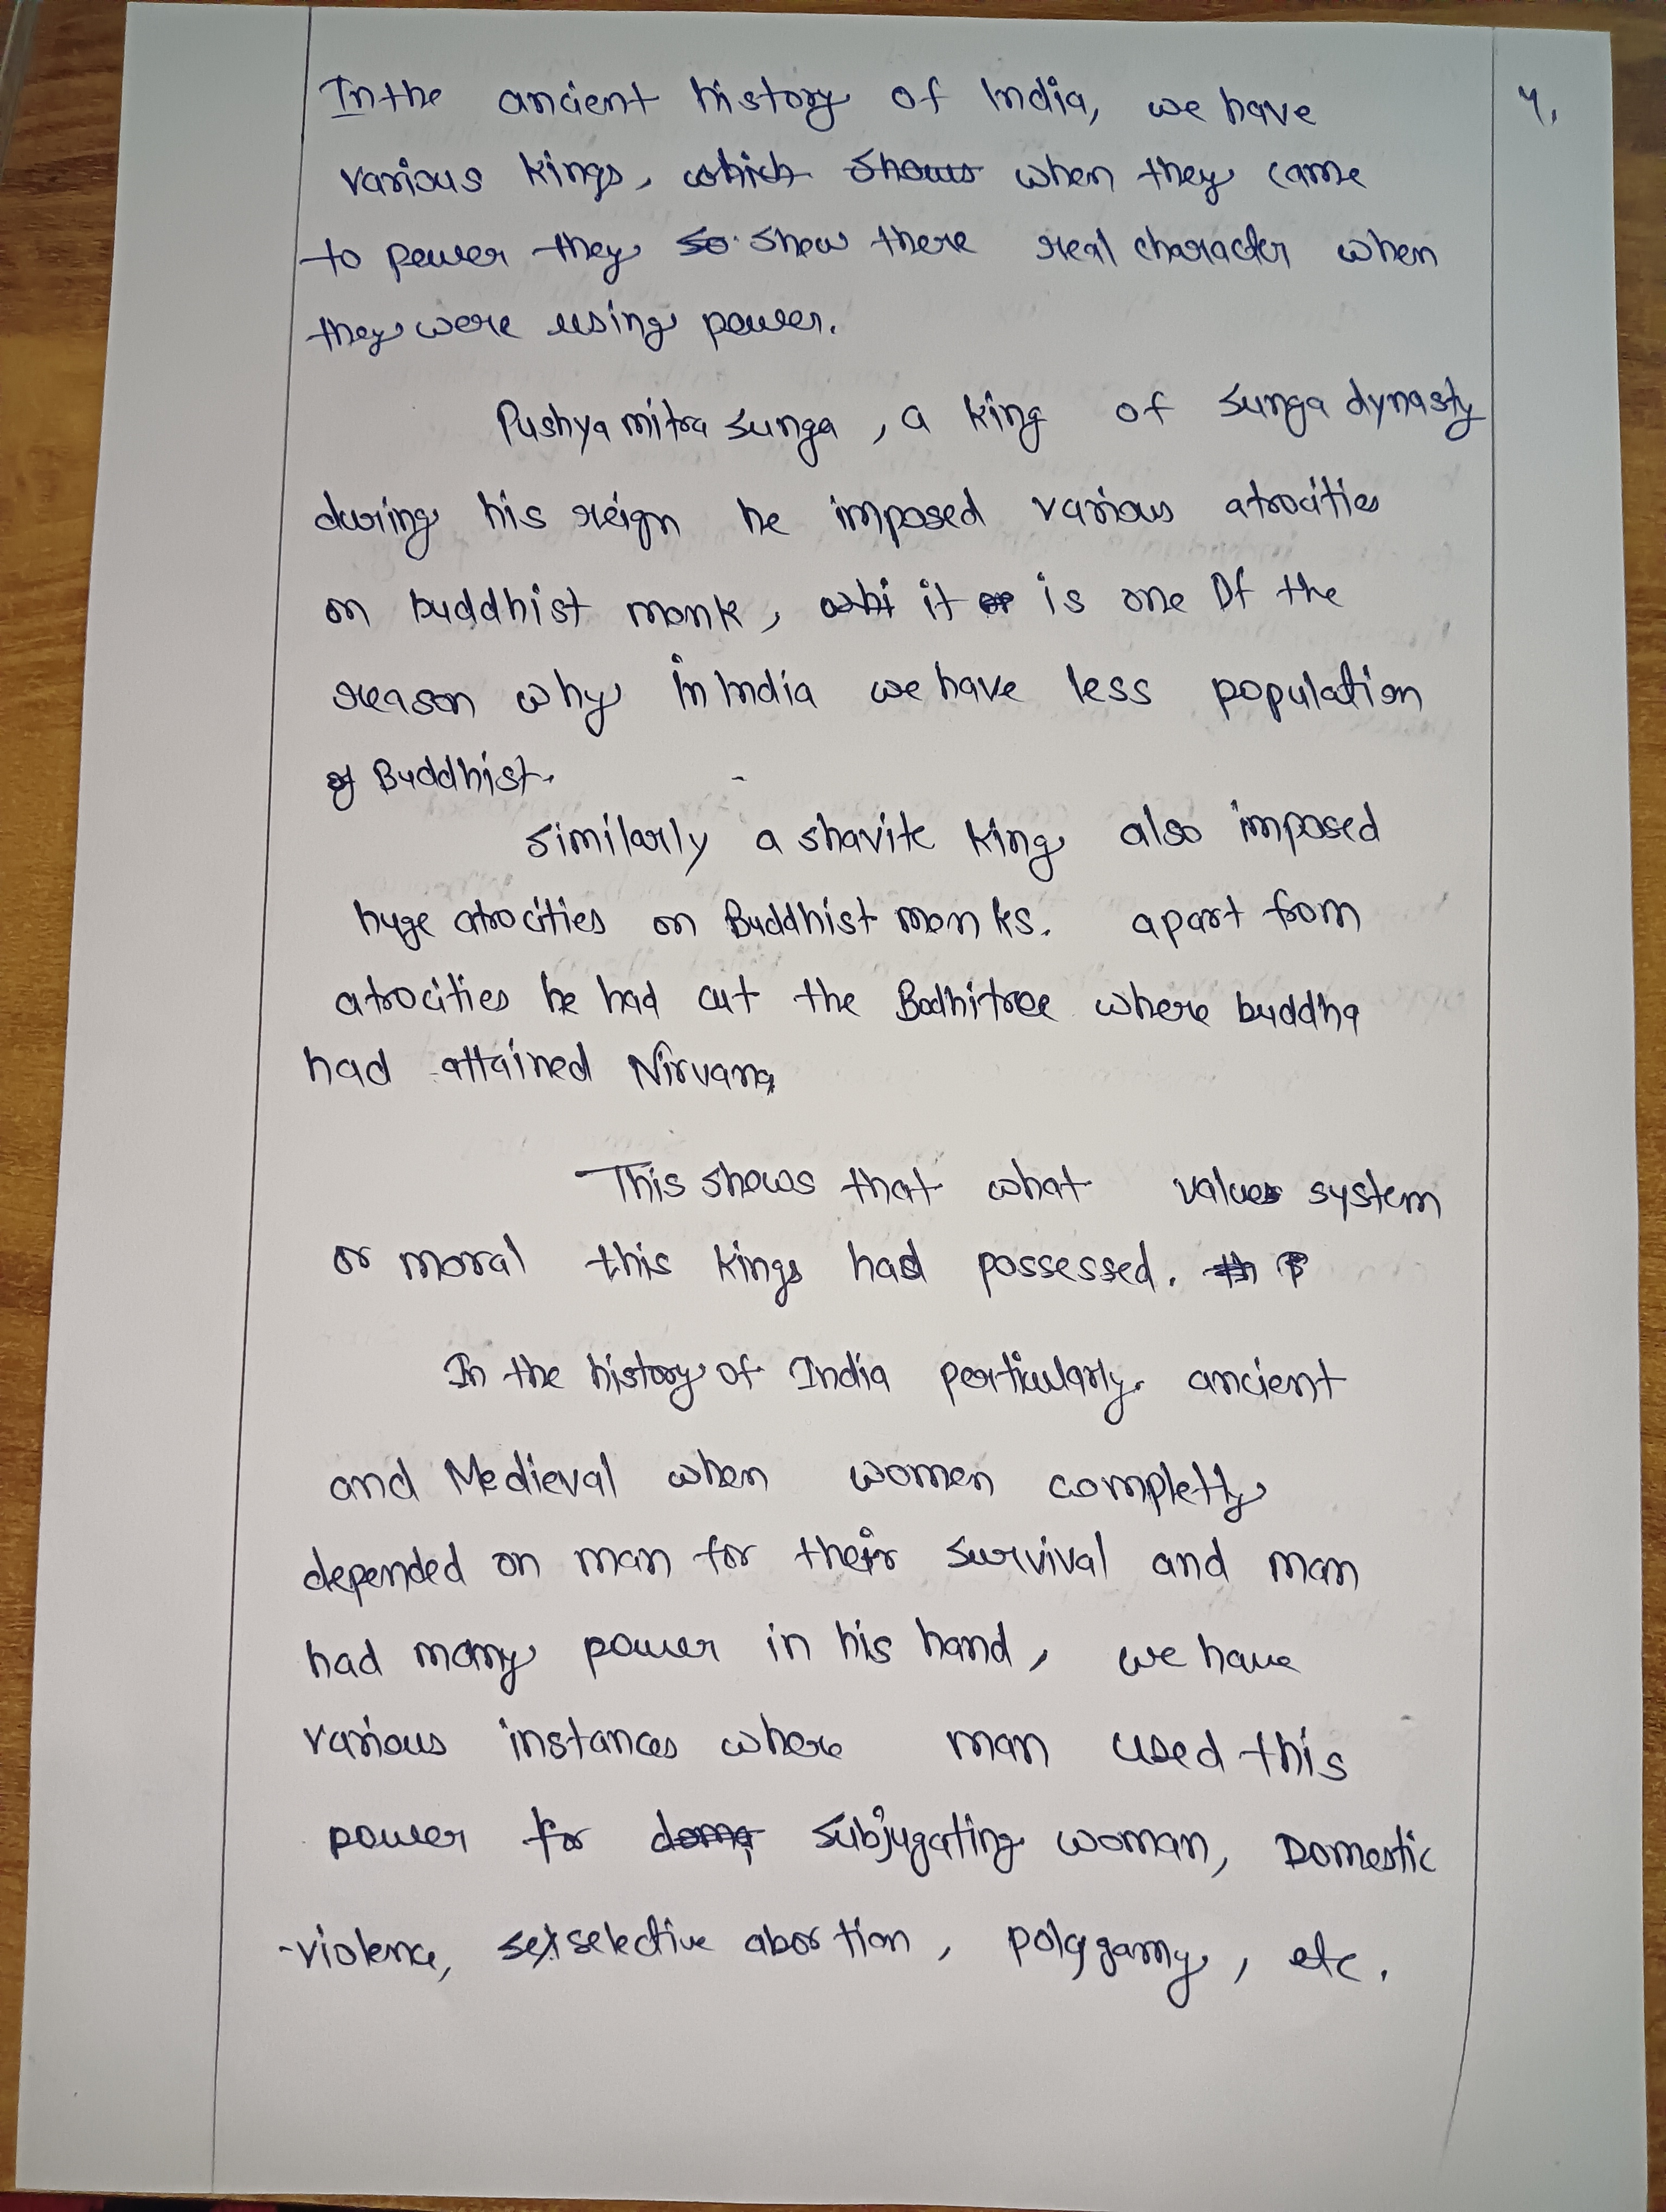 In the ancient history of India, we have
4.
various kings, which shows when they came
to power they so show there real character when
they were using power.
Pushyamitra Sunga, a king of Sunga dynasty
during his reign he imposed various atrocities
on buddhist monk, whi it is one Of the
reason why in India we have less population
of Buddhist.
Similarly a shavite king also imposed
huge atrocities on Buddhist monks. apart from
atrocities he had cut the Bodhitree where buddha
had attained Nirvana
This shows that what values system
or moral this kings had possessed. th
In the history of India perticularly ancient
and Medieval when women completly
depended on man for their survival and man
had many power in his hand, we have
various instances where man used this
power for doma subjugating woman, Domestic
violence, sex selective abortion, polygamy, etc.